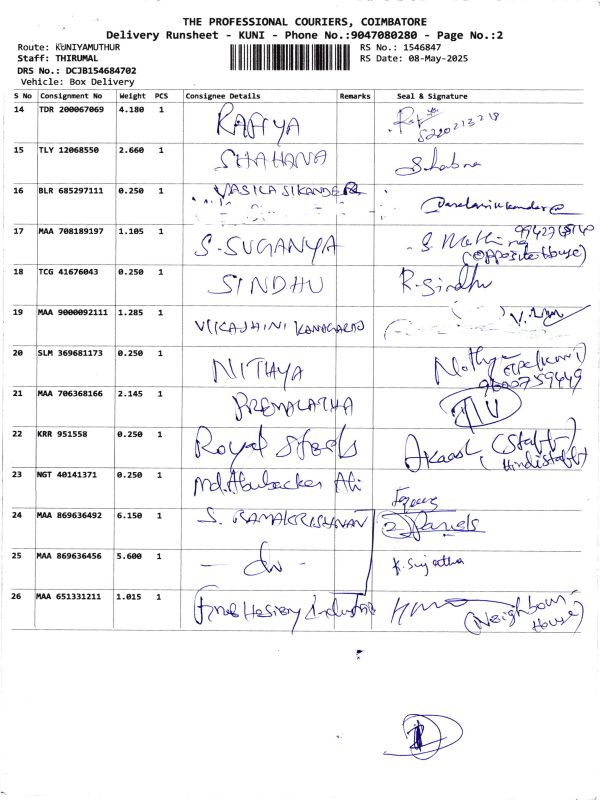 THE PROFESSIONAL COURIERS, COIMBATORE
Delivery Runsheet - KUNI - Phone No.:9047080280 - Page No.:2
Route: KUNIYAMUTHUR RS No.: 1546847
Staff: THIRUMAL RS Date: 08-May-2025
DRS No.: DCJB154684702
Vehicle: Box Delivery
S No Consignment No Weight PCS Consignee Details Remarks Seal & Signature
14 TDR 200067069 4.180 1 RAFIYA
15 TLY 12068550 2.660 1 SHAHANA
16 BLR 685297111 0.250 1 VASILA SIKANDER
17 MAA 708189197 1.105 1 S. SUGANYA
(opposite House)
18 TCG 41676043 0.250 1 SINDHU R. Sindhu
19 MAA 9000092111 1.285 1
20 SLM 369681173 0.250 1 NITHYA
9600759449
21 MAA 706368166 2.145 1 PREMALATHA
22 KRR 951558 0.250 1 Royal Steels Akaash (Staff)
23 NGT 40141371 0.250 1 Md. Abubacker Ali
24 MAA 869636492 6.150 1 S. RAMAKRISHNAN
25 MAA 869636456 5.600 1 - do - K. Sujatha
26 MAA 651331211 1.015 1
(Neighbour House)